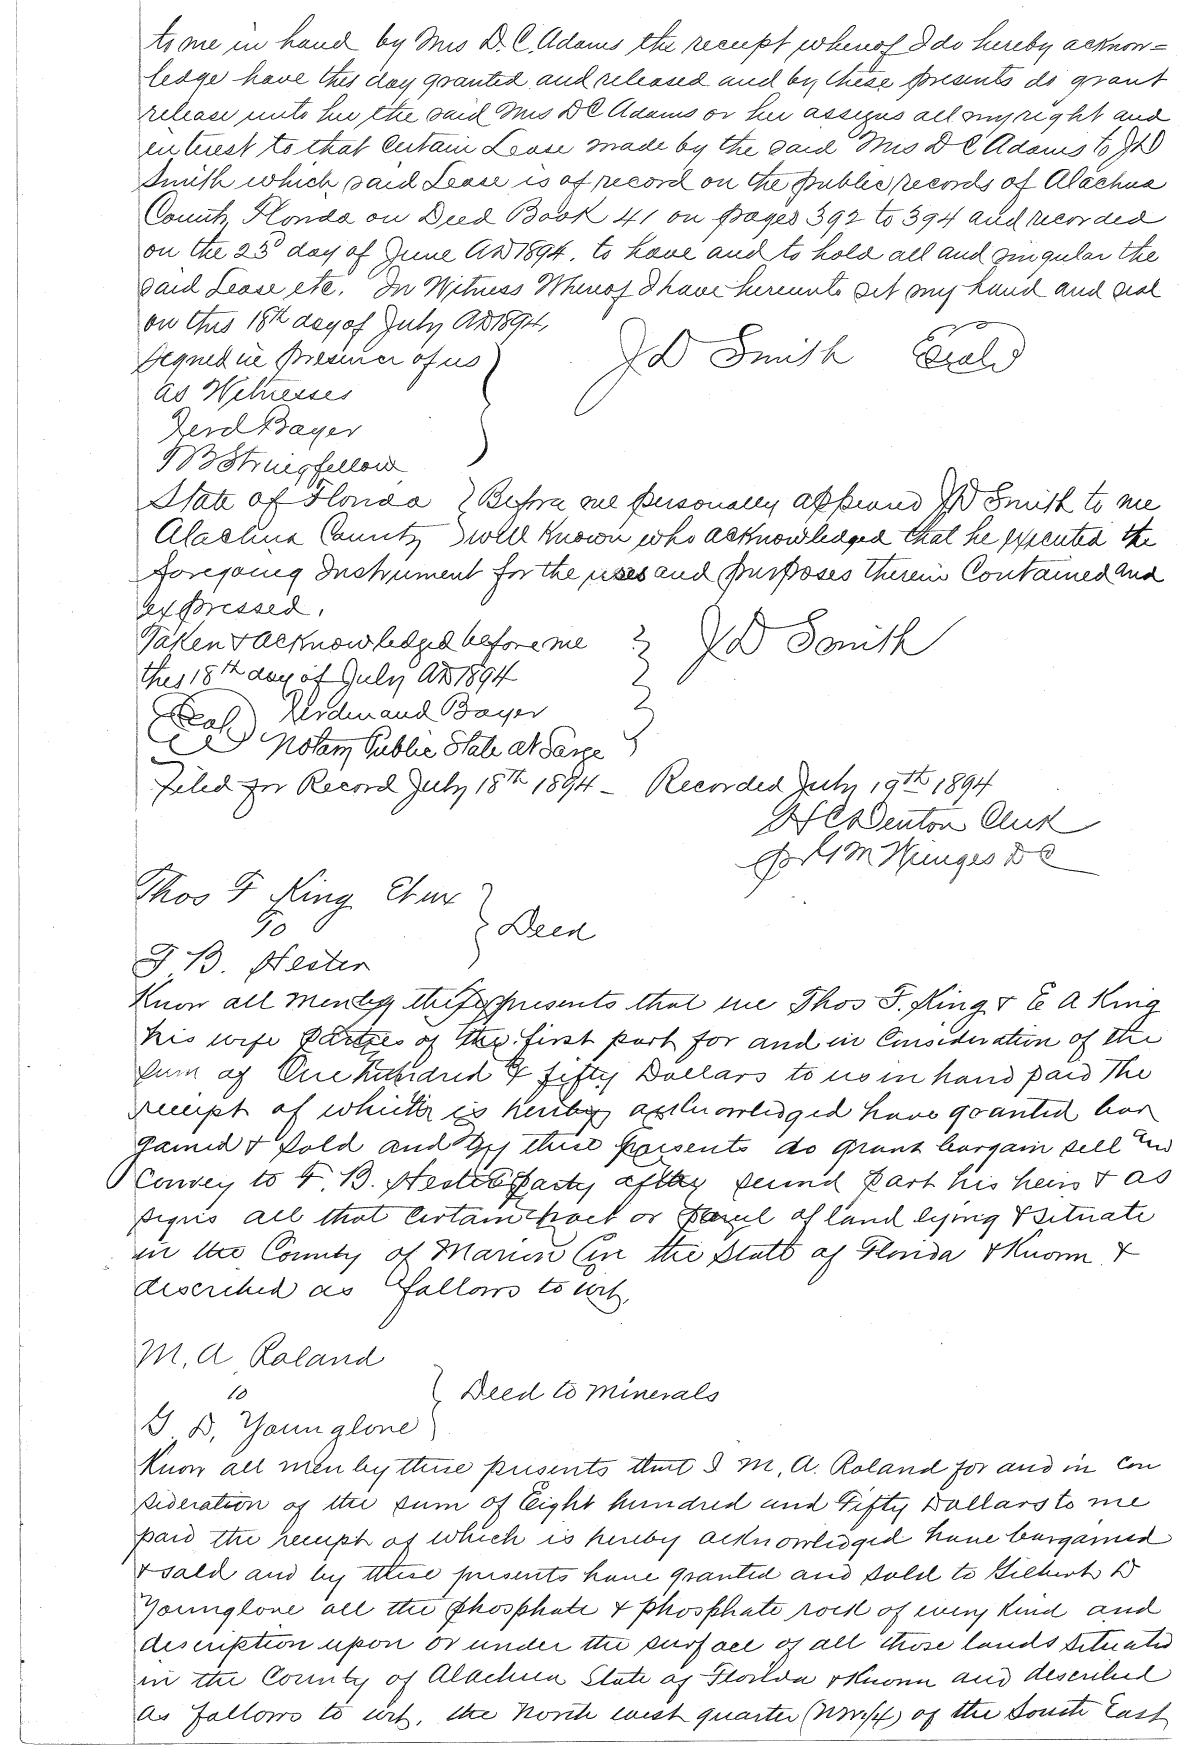 to me in hand by Mrs D. C. Adams the receipt whereof I do hereby acknow=
ledge have this day granted and released and by these presents do grant
release unto her the said Mrs D C Adams or her assigns all my right and
interest to that certain Lease made by the said Mrs D C Adams to J D
Smith which said Lease is of record on the public records of Alachua
County Florida on Deed Book 41 on pages 392 to 394 and recorded
on the 23d day of June AD 1894. to have and to hold all and singular the
said Lease etc. In Witness Whereof I have hereunto set my hand and seal
on this 18th day of July AD 1894,
Signed in presence of us
J D Smith (Seal)
as Witnesses
Ferd Bayer
T B Stringfellow
State of Florida } Before me personally appeared J D Smith to me
Alachua County } well known who acknowledged that he executed the
foregoing Instrument for the uses and purposes therein Contained and
expressed.
Taken & acknowledged before me } J D Smith
this 18th day of July AD 1894
(Seal) Ferdinand Bayer
Notary Public State at Large
Filed for Record July 18th 1894 - Recorded July 19th 1894
H C Denton Clerk
pr G M Wienges D C
Thos F King Et ux
To } Deed
F. B. Hester
Know all men by these presents that we Thos F. King & E A King
his wife parties of the first part for and in Consideration of the
sum of One hundred & fifty Dollars to us in hand paid The
receipt of which is hereby acknowledged have granted bar
gained & sold and by these presents do grant bargain sell and
Convey to F. B. Hester party of the second part his heirs & as
signs all that certain tract or parcel of land lying & situate
in the County of Marion in the State of Florida & Known &
described as follows to wit,
M. A. Roland
to } Deed to Minerals
G. D. Younglove
Know all men by these presents that I M. A. Roland for and in Con
sideration of the sum of Eight hundred and Fifty Dollars to me
paid the receipt of which is hereby acknowledged have bargained
& sold and by these presents have granted and sold to Gilbert D
Younglove all the phosphate & phosphate rock of every kind and
description upon or under the surface of all those lands situated
in the County of Alachua State of Florida & Known and described
as follows to wit, the North west quarter (NW 1/4) of the South East